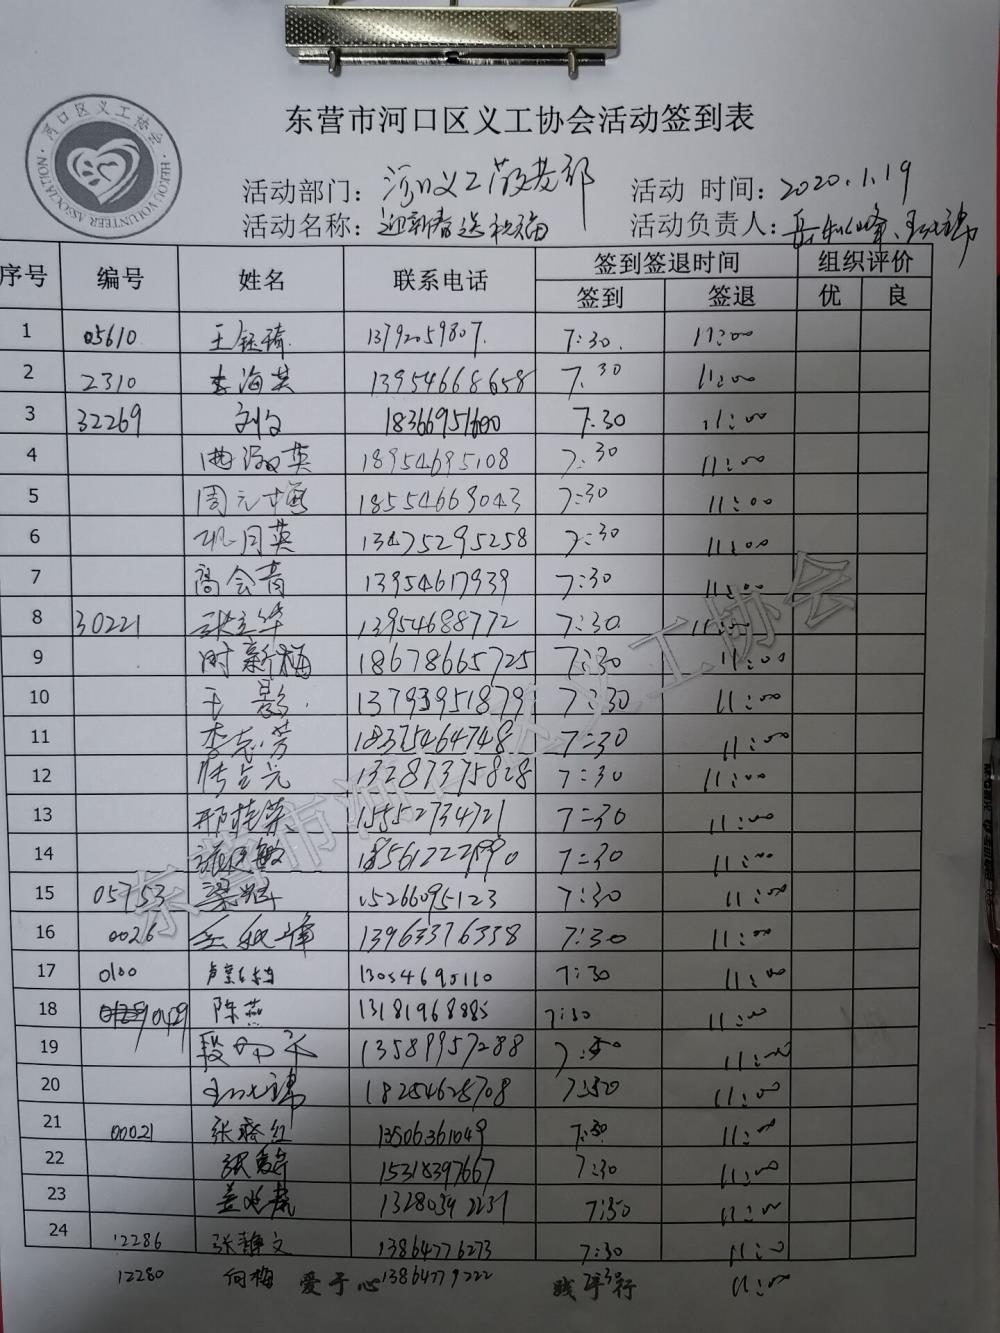 东营市河口区义工协会活动签到表
河口区义工协会
HEKOU VOLUNTEER ASSOCIATION
活动部门：河口义工敬老部 活动 时间：2020.1.19
活动名称：迎新春送祝福 活动负责人：
序号 编号 姓名 联系电话 签到签退时间 组织评价
签到 签退 优 良
1 05610 王钰琦 13792059807. 7:30. 11:00
2 2310 李海英 13954668658 7:30 11:00
3 32269 刘文 18366951600 7:30 11:00
4 曲淑英 18954695108 7:30 11:00
5 周元梅 18554669043 7:30 11:00
6 巩月英 13475295258 7:30 11:00
7 高会青 13954617939 7:30 11:00
8 30221 张立华 13954688772 7:30 11:00
9 时新梅 18678665725 7:30 11:00
10 于影 13793951879 7:30 11:00
11 李志芳 18375464748 7:30 11:00
12 13287375828 7:30 11:00
13 邢桂英 15552734721 7:30 11:00
14 7:30 11:00
15 05753 梁辉 15266095123 7:30 11:00
16 0026 13963376338 7:30 11:00
17 0100 13054690110 7:30 11:00
18 0429 陈燕 13181968885 7:30 11:00
19 13589957288 11:00
20 18254625708 7:30 11:00
21 00021 13506361049 7:30 11:00
22 15318397667 7:30 11:00
23 7:30 11:00
24 12286 张静文 13864776273 7:30 11:00
12280 何梅 爱于心 13864779222 践于行 7:30 11:00
东营市河口区义工协会